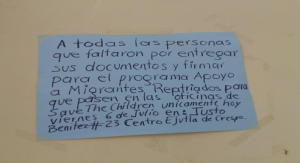 A todas las personas
que faltaron por entregar
sus documentos y firmar
para el programa Apoyo
a Migrantes Repatriados para
que pasen en las oficinas de
Save The Children unicamente hoy
viernes 6 de Julio en: Justo
Benitez # 23 Centro Ejutla de Crespo.